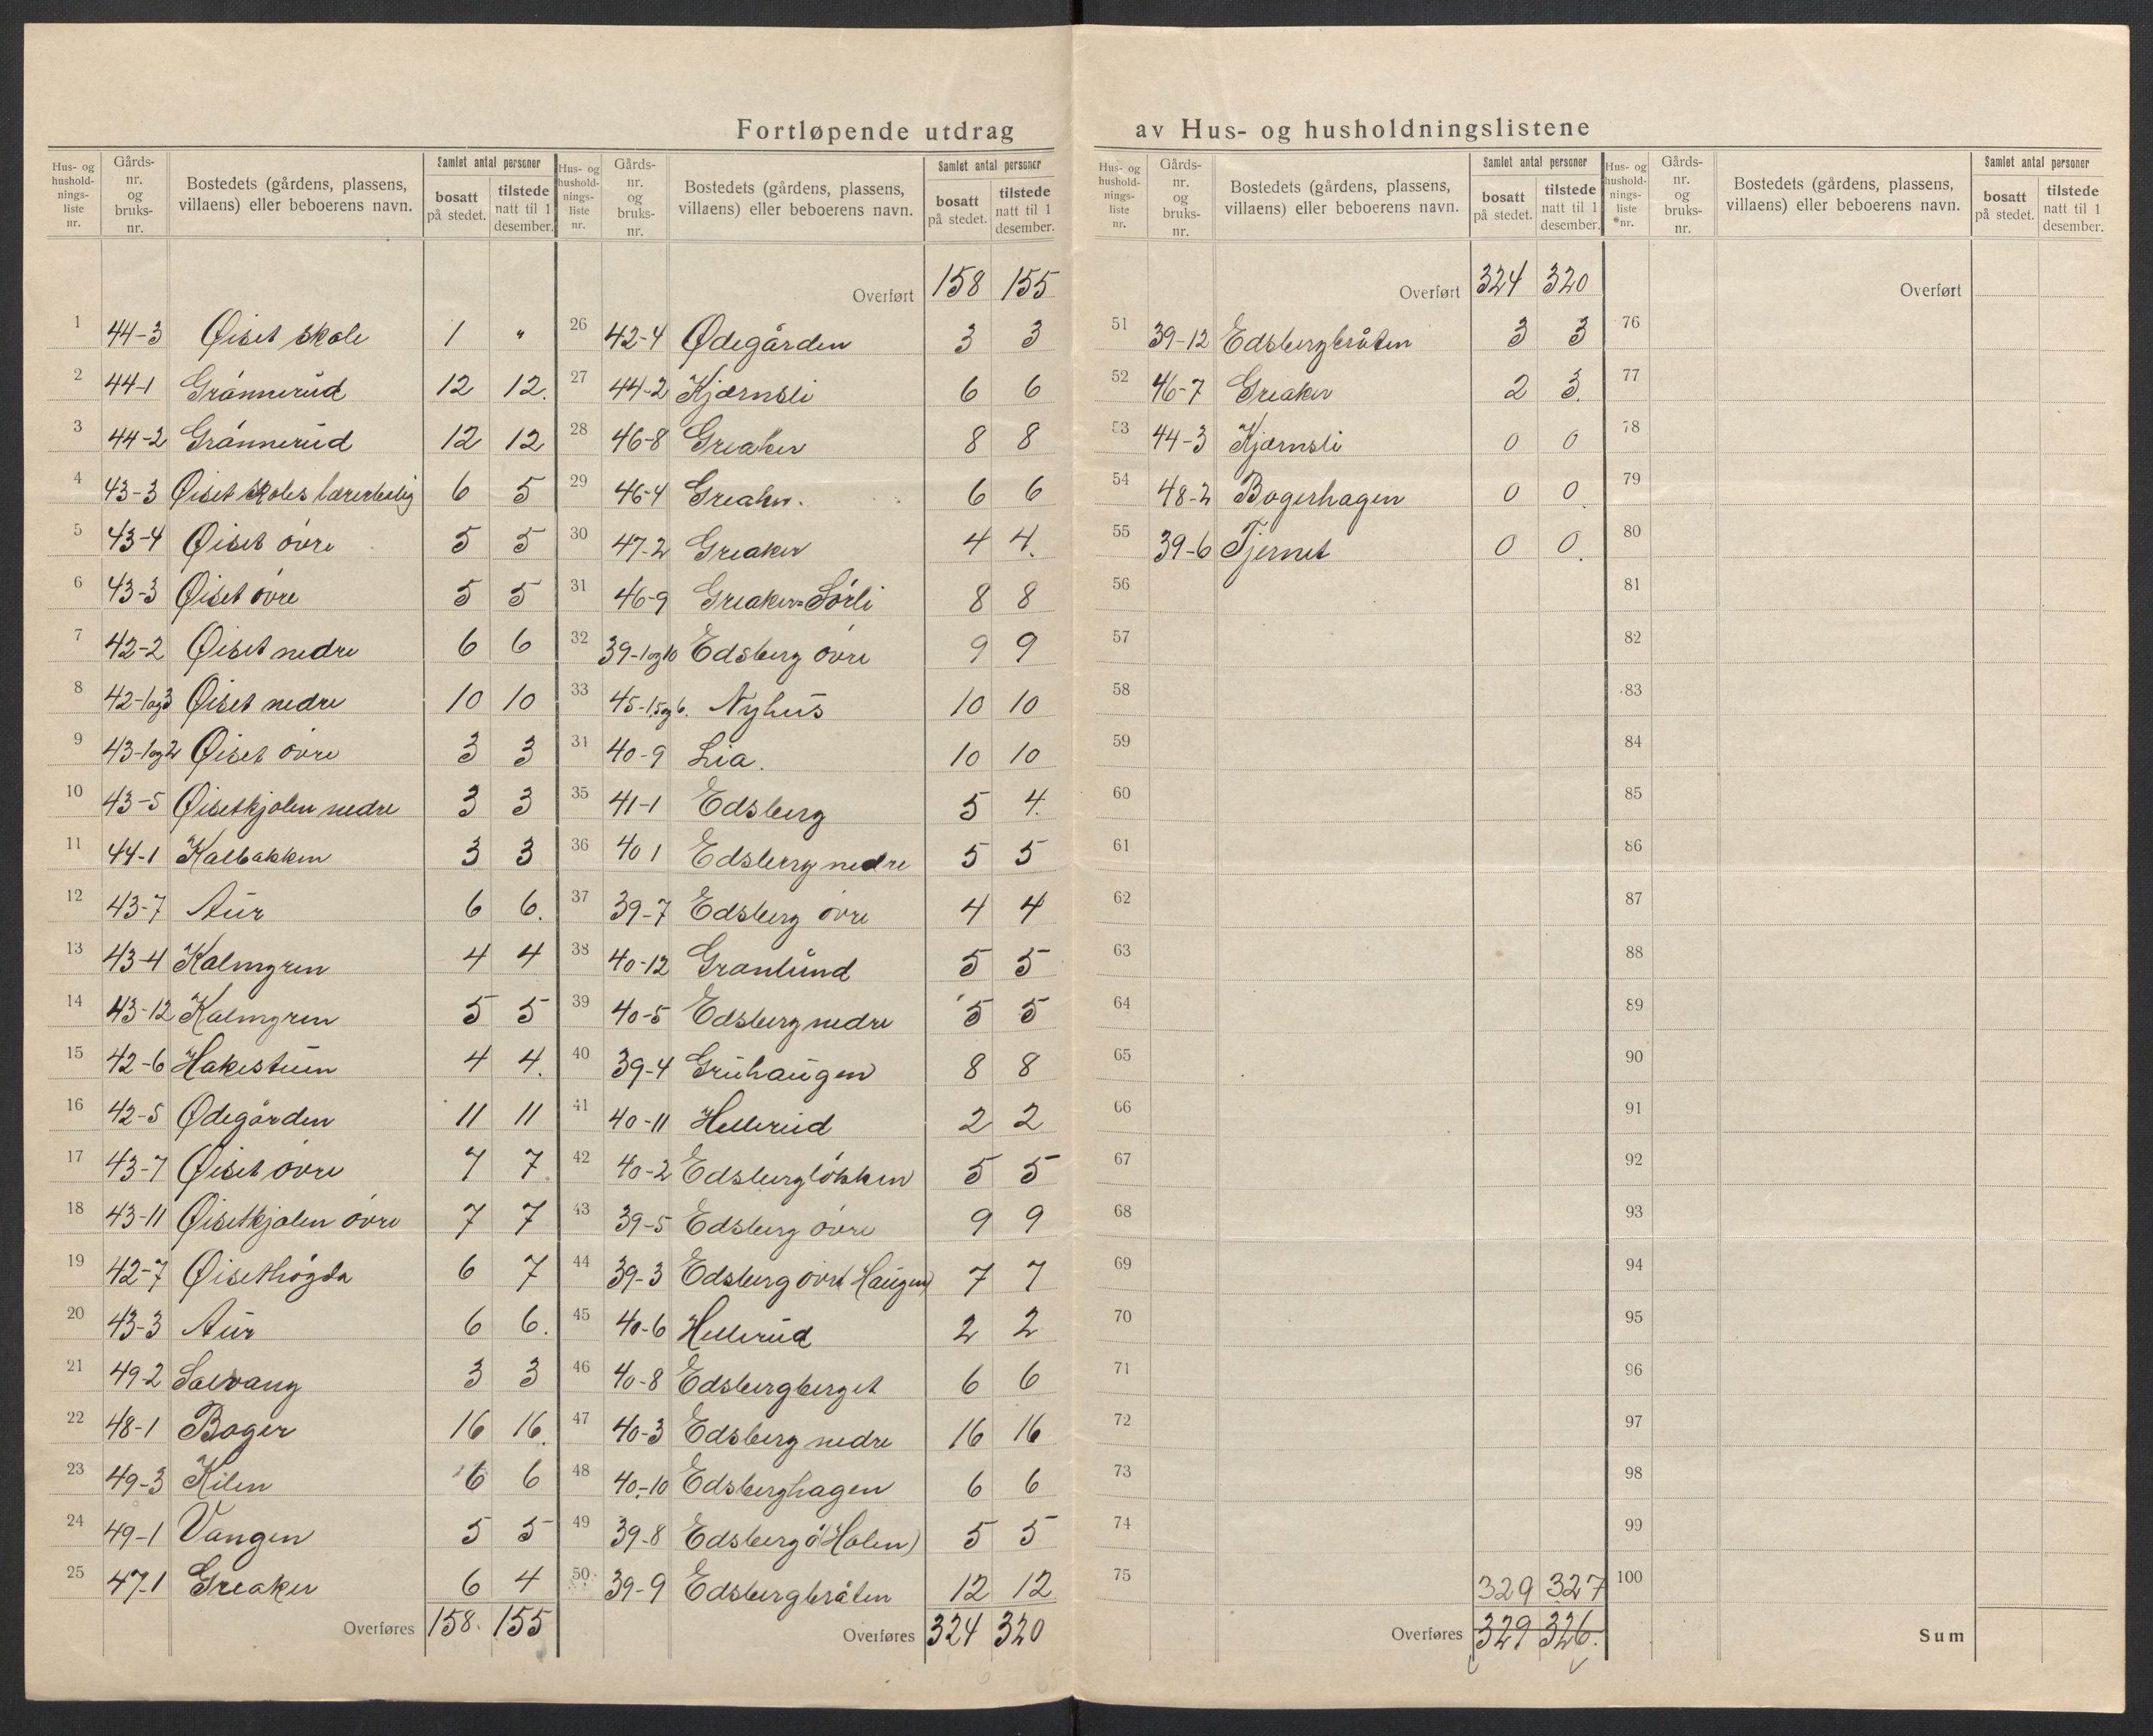 Fortløpende utdrag av Hus- og husholdningslistene
Hus- og husholdnings-liste nr. | Gårds-nr. og bruks-nr. | Bostedets (gårdens, plassens, villaens) eller beboerens navn. | Samlet antal personer | bosatt på stedet. | tilstede natt til 1 desember.
1 44-3 Øiset skole 1 "
2 44-1 Grónnerud 12 12.
3 44-2 Grónnerud 12 12
4 43-3 Øiset skoles lærerbolig 6 5
5 43-4 Øiset óvre 5 5
6 43-3 Øiset óvre 5 5
7 42-2 Øiset nedre 6 6
8 42-1og3 Øiset nedre 10 10
9 43-1og2 Øiset óvre 3 3
10 43-5 Øisetkjolen nedre 3 3
11 44-1 Kalbakken 3 3
12 43-7 Aur 6 6.
13 43-4 Kalmgren 4 4
14 43-12 Kalmgren 5 5
15 42-6 Hakestuen 4 4.
16 42-5 Ødegården 11 11
17 43-7 Øiset óvre 7 7.
18 43-11 Øisetkjolen óvre 7 7
19 42-7 Øisethógda 6 7
20 43-3 Aur 6 6.
21 49-2 Solvang 3 3
22 48-1 Boger 16 16.
23 49-3 Kilen 6 6
24 49-1 Vangen 5 5
25 47-1 Greaker 6 4
Overføres 158. 155
Hus- og husholdnings-liste nr. | Gårds-nr. og bruks-nr. | Bostedets (gårdens, plassens, villaens) eller beboerens navn. | Samlet antal personer | bosatt på stedet. | tilstede natt til 1 desember.
Overført 158 155
26 42-4 Ødegården 3 3
27 44-2 Kjærnsli 6 6
28 46-8 Greaker 8 8
29 46-4 Greaker. 6 6
30 47-2 Greaker 4 4.
31 46-9 Greaker=Sórli 8 8
32 39-1og10 Edsberg óvre 9 9
33 45-1,5og6. Nyhus 10 10
34 40-9 Lia. 10 10
35 41-1 Edsberg 5 4.
36 40 1 Edsberg nedre 5 5
37 39-7 Edsberg óvre 4 4
38 40-12 Granlund 5 5
39 40-5 Edsberg nedre 5 5
40 39-4 Gruhaugen 8 8
41 40-11 Hellerud 2 2
42 40-2 Edsberglókken 5 5
43 39-5 Edsberg óvre 9 9
44 39-3 Edsberg óvre (Haugen) 7 7
45 40-6 Hellerud 2 2
46 40-8 Edsbergberget 6 6
47 40-3 Edsberg nedre 16 16
48 40-10 Edsberghagen 6 6
49 39-8 Edsberg ó (Holen) 5 5
50 39-9 Edsbergbråten 12 12
Overføres 324 320
Hus- og husholdnings-liste nr. | Gårds-nr. og bruks-nr. | Bostedets (gårdens, plassens, villaens) eller beboerens navn. | Samlet antal personer | bosatt på stedet. | tilstede natt til 1 desember.
Overført 324 320
51 39-12 Edsbergbråten 3 3
52 46-7 Greaker 2 3.
53 44-3 Kjærnsli 0 0
54 48-2 Bogerhagen 0 0
55 39-6 Tjernet 0 0.
56
57
58
59
60
61
62
63
64
65
66
67
68
69
70
71
72
73
74
75 329 327
Overføres 329 326.
Hus- og husholdnings-liste nr. | Gårds-nr. og bruks-nr. | Bostedets (gårdens, plassens, villaens) eller beboerens navn. | Samlet antal personer | bosatt på stedet. | tilstede natt til 1 desember.
Overført
76
77
78
79
80
81
82
83
84
85
86
87
88
89
90
91
92
93
94
95
96
97
98
99
100
Sum